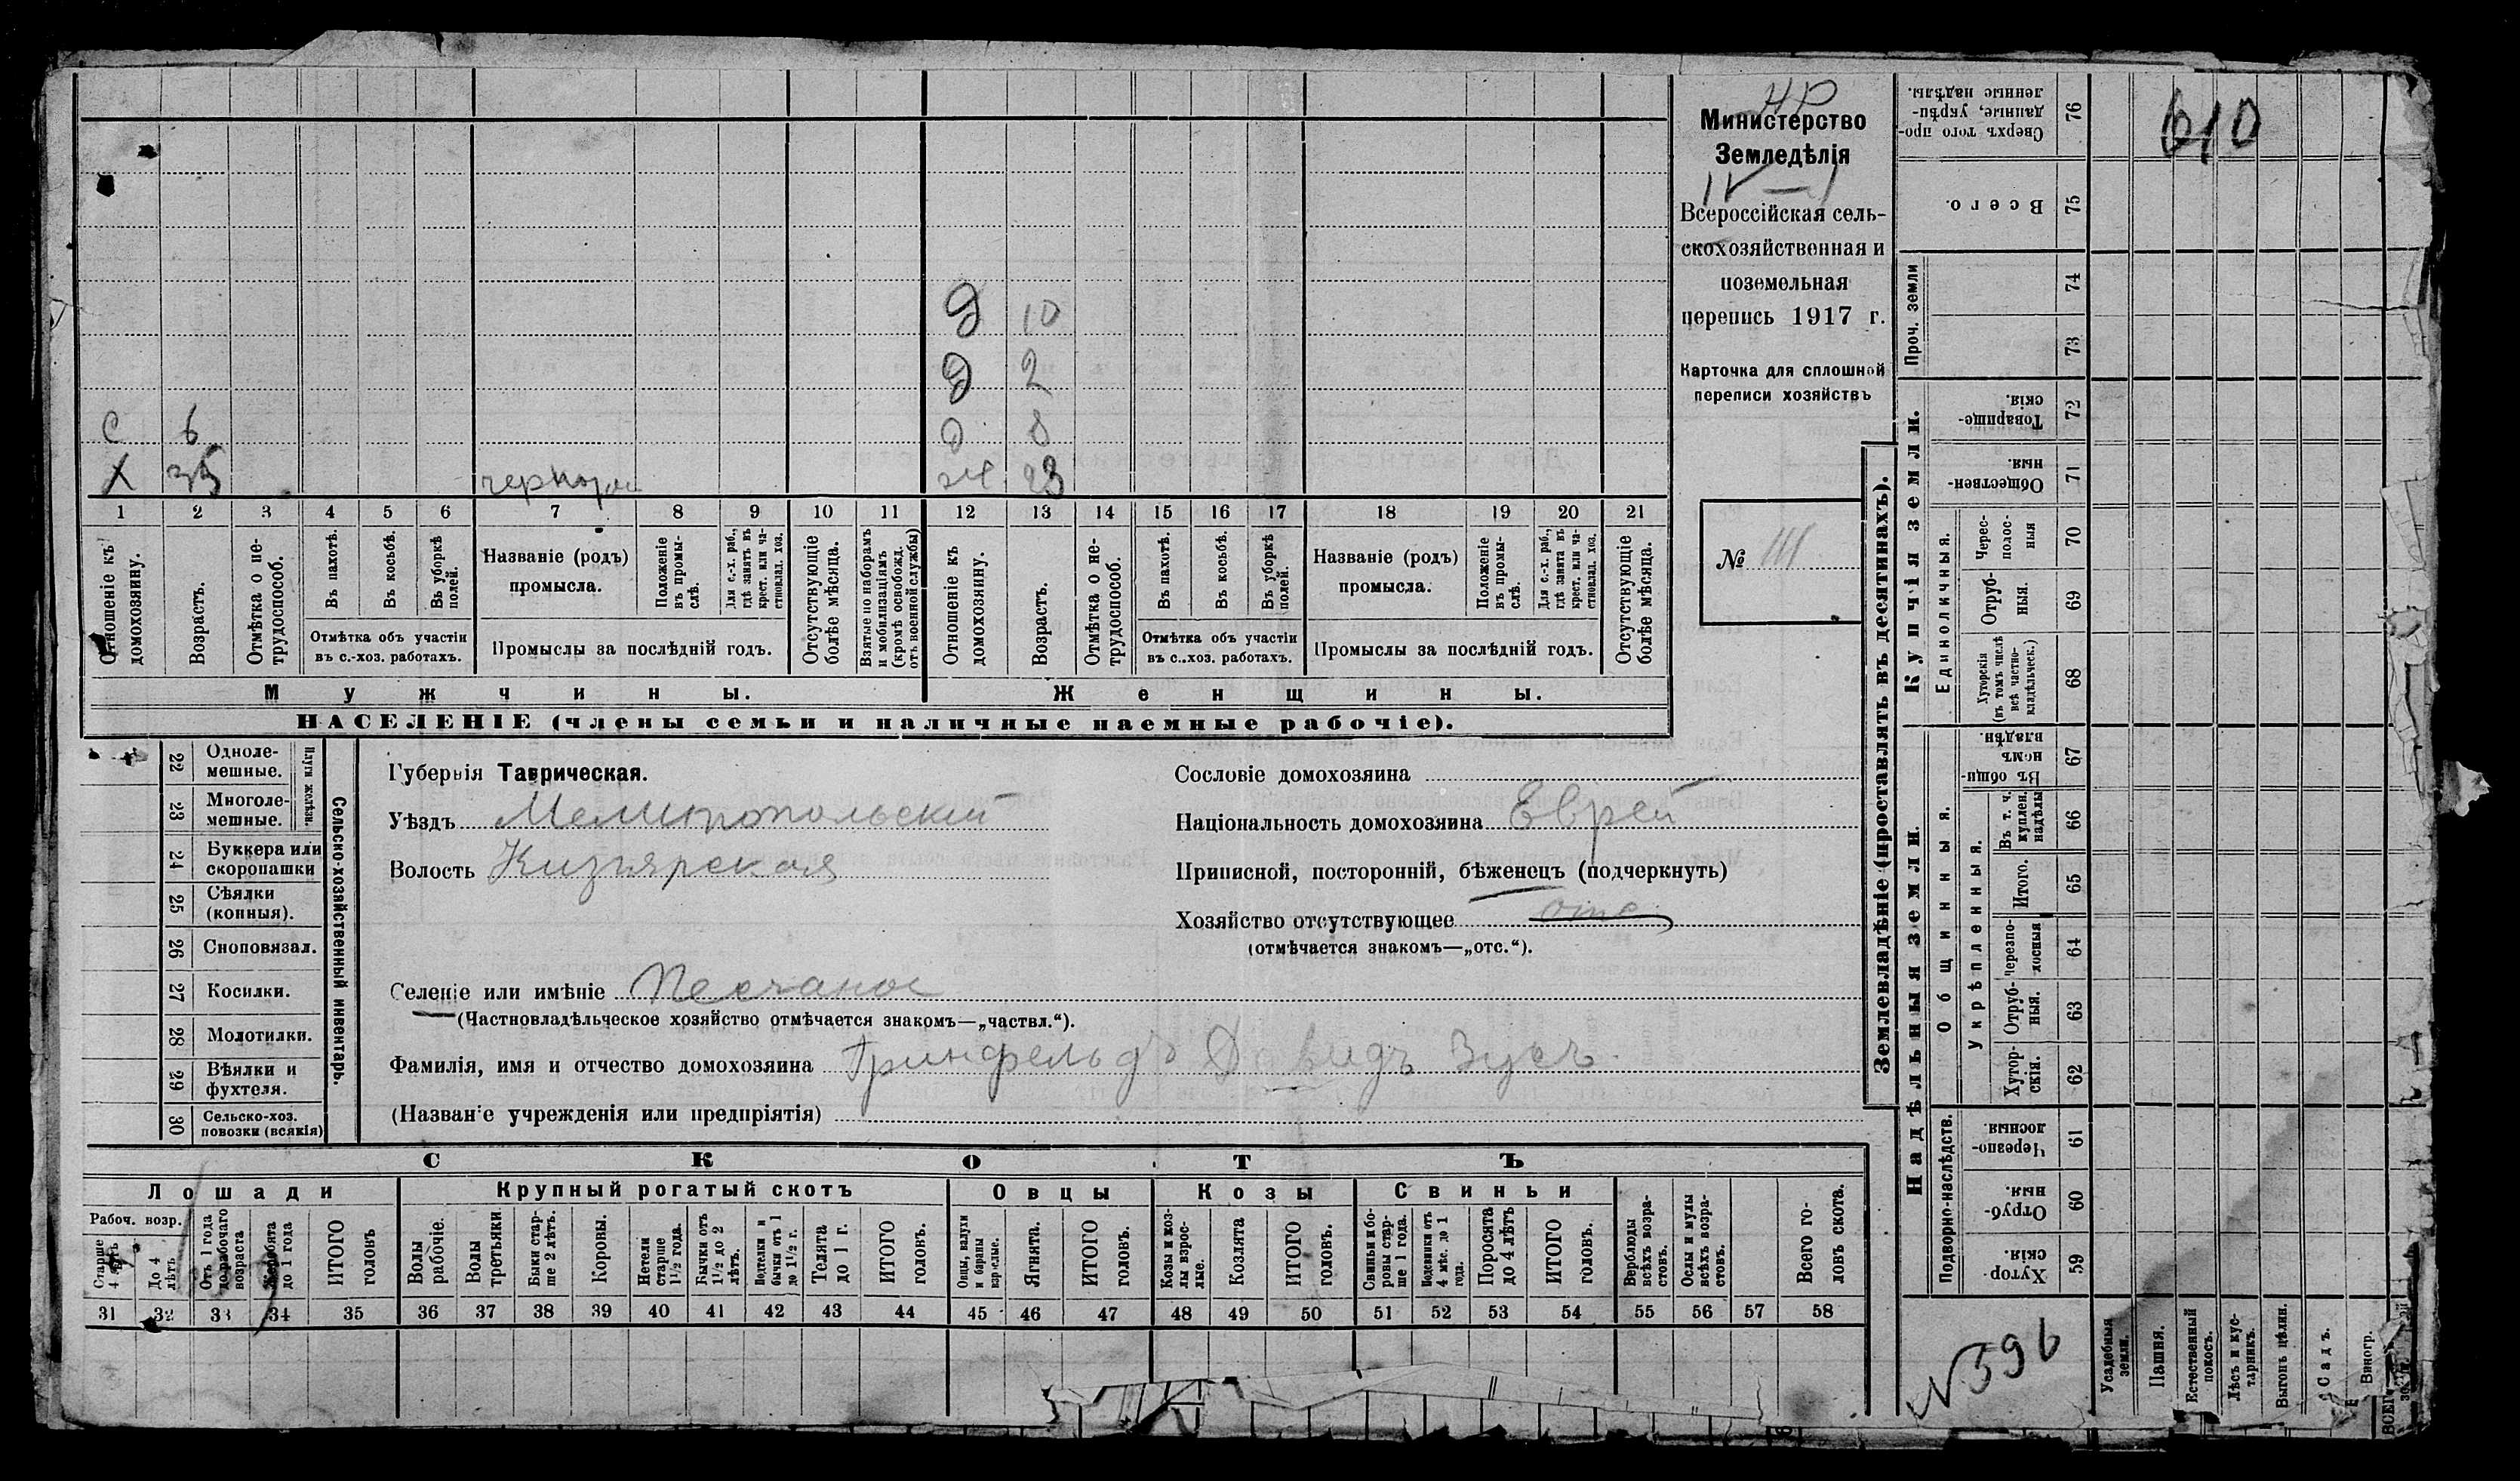 НР
Министерство
Земледѣлія
IV — 1
Всероссійская сель-
скохозяйственная и
поземельная
перепись 1917 г.
Карточка для сплошной
переписи хозяйствъ
№
610
Д 10
Д 2
С 6 Д 8
Х 35 ж 23
1 2 3 4 5 6 7 8 9 10 11 12 13 14 15 16 17 18 19 20 21
Отношеніе къ домохозяину.
Возрастъ.
Отмѣтка о не-трудоспособ.
Въ пахотѣ.
Въ косьбѣ.
Въ уборкѣ полей.
Отмѣтка объ участіи
въ с.-хоз. работахъ.
Названіе (родъ)
промысла.
Положеніе въ промы-слѣ.
Для с.-х. раб., гдѣ занятъ въ крест. или ча-стновлад. хоз.
Промыслы за послѣдній годъ.
Отсутствующіе болѣе мѣсяца.
Взятые по наборамъ и мобилизаціямъ (кромѣ освобожд. отъ военной службы)
Отношеніе къ домохозяину.
Возрастъ.
Отмѣтка о не-трудоспособ.
Въ пахотѣ.
Въ косьбѣ.
Въ уборкѣ полей.
Отмѣтка объ участіи
въ с..хоз. работахъ.
Названіе (родъ)
промысла.
Положеніе въ промы-слѣ.
Для с.-х. раб., гдѣ занята въ крест. или ча-стновлад. хоз.
Промыслы за послѣдній годъ.
Отсутствующіе болѣе мѣсяца.
Мужчины.
Женщины.
НАСЕЛЕНІЕ (члены семьи и наличные наемные рабочіе).
22 Одноле-мешные.
23 Многоле-мешные.
Плуги желѣзн.
24 Буккера или скоропашки
25 Сѣялки (конныя).
26 Сноповязал.
27 Косилки.
28 Молотилки.
29 Вѣялки и фухтеля.
30 Сельско-хоз. повозки (всякія)
Сельско-хозяйственный инвентарь.
Губернія Таврическая.
Уѣздъ Мелитопольский
Волость Кизиярская
Сословіе домохозяина
Національность домохозяина Еврей
Приписной, посторонній, бѣженецъ (подчеркнуть)
Хозяйство отсутствующее отс
(отмѣчается знакомъ—„отс.“).
Селеніе или имѣніе Песчаное
(Частновладѣльческое хозяйство отмѣчается знакомъ—„частвл.“).
Фамилія, имя и отчество домохозяина Гринфельдъ Давидъ Зусъ
(Названіе учрежденія или предпріятія)
СКОТЪ
Лошади
Крупный рогатый скотъ
Овцы
Козы
Свиньи
Рабоч. возр.
Старше 4 лѣтъ
До 4 лѣтъ
Отъ 1 года до рабочаго возраста
Жеребята до 1 года
ИТОГО головъ
Волы рабочіе.
Волы третьяки
Быки стар-ше 2 лѣтъ.
Коровы.
Нетели старше 1 1/2 года.
Бычки отъ 1 1/2 до 2 лѣтъ.
Подтелки и бычки отъ 1 до 1 1/2 г.
Телята до 1 г.
ИТОГО головъ.
Овцы, валухи и бараны взрослые.
Ягнята.
ИТОГО головъ.
Козы и коз-лы взрос-лые.
Козлята
ИТОГО головъ.
Свиньи и бо-ровы стар-ше 1 года.
Подсвинки отъ 4 мѣс. до 1 года.
Поросята до 4 лѣтъ
ИТОГО головъ.
Верблюды всѣхъ возра-стовъ.
Ослы и мулы всѣхъ возра-стовъ.
Всего го-ловъ скота.
31 32 33 34 35 36 37 38 39 40 41 42 43 44 45 46 47 48 49 50 51 52 53 54 55 56 57 58
Землевладѣніе (проставлять въ десятинахъ).
Купчія земли.
Надѣльныя земли.
Сверхъ того про-данные, укрѣп-ленные надѣлы. 76
Всего. 75
Проч. земли
74
73
Товарище-скія. 72
Обществен-ныя. 71
Единоличныя.
Черес-полос-ныя 70
Отруб-ныя. 69
Хуторскія (въ томъ числѣ всѣ частно-владѣльческ.) 68
Общинныя.
Въ общи-номъ владѣн. 67
Укрѣпленныя.
Въ т. ч. куплен. надѣлы 66
Итого. 65
Черезпо-лосныя 64
Отруб-ныя. 63
Хутор-скія. 62
Подворно-наслѣдств.
Черезпо-лосныя. 61
Отруб-ныя. 60
Хутор-скія. 59
Усадебныя земли.
Пашня.
Естественный покосъ.
Лѣсъ и кус-тарникъ.
Выгонъ цѣлин.
Садъ.
Виногр.
N 596